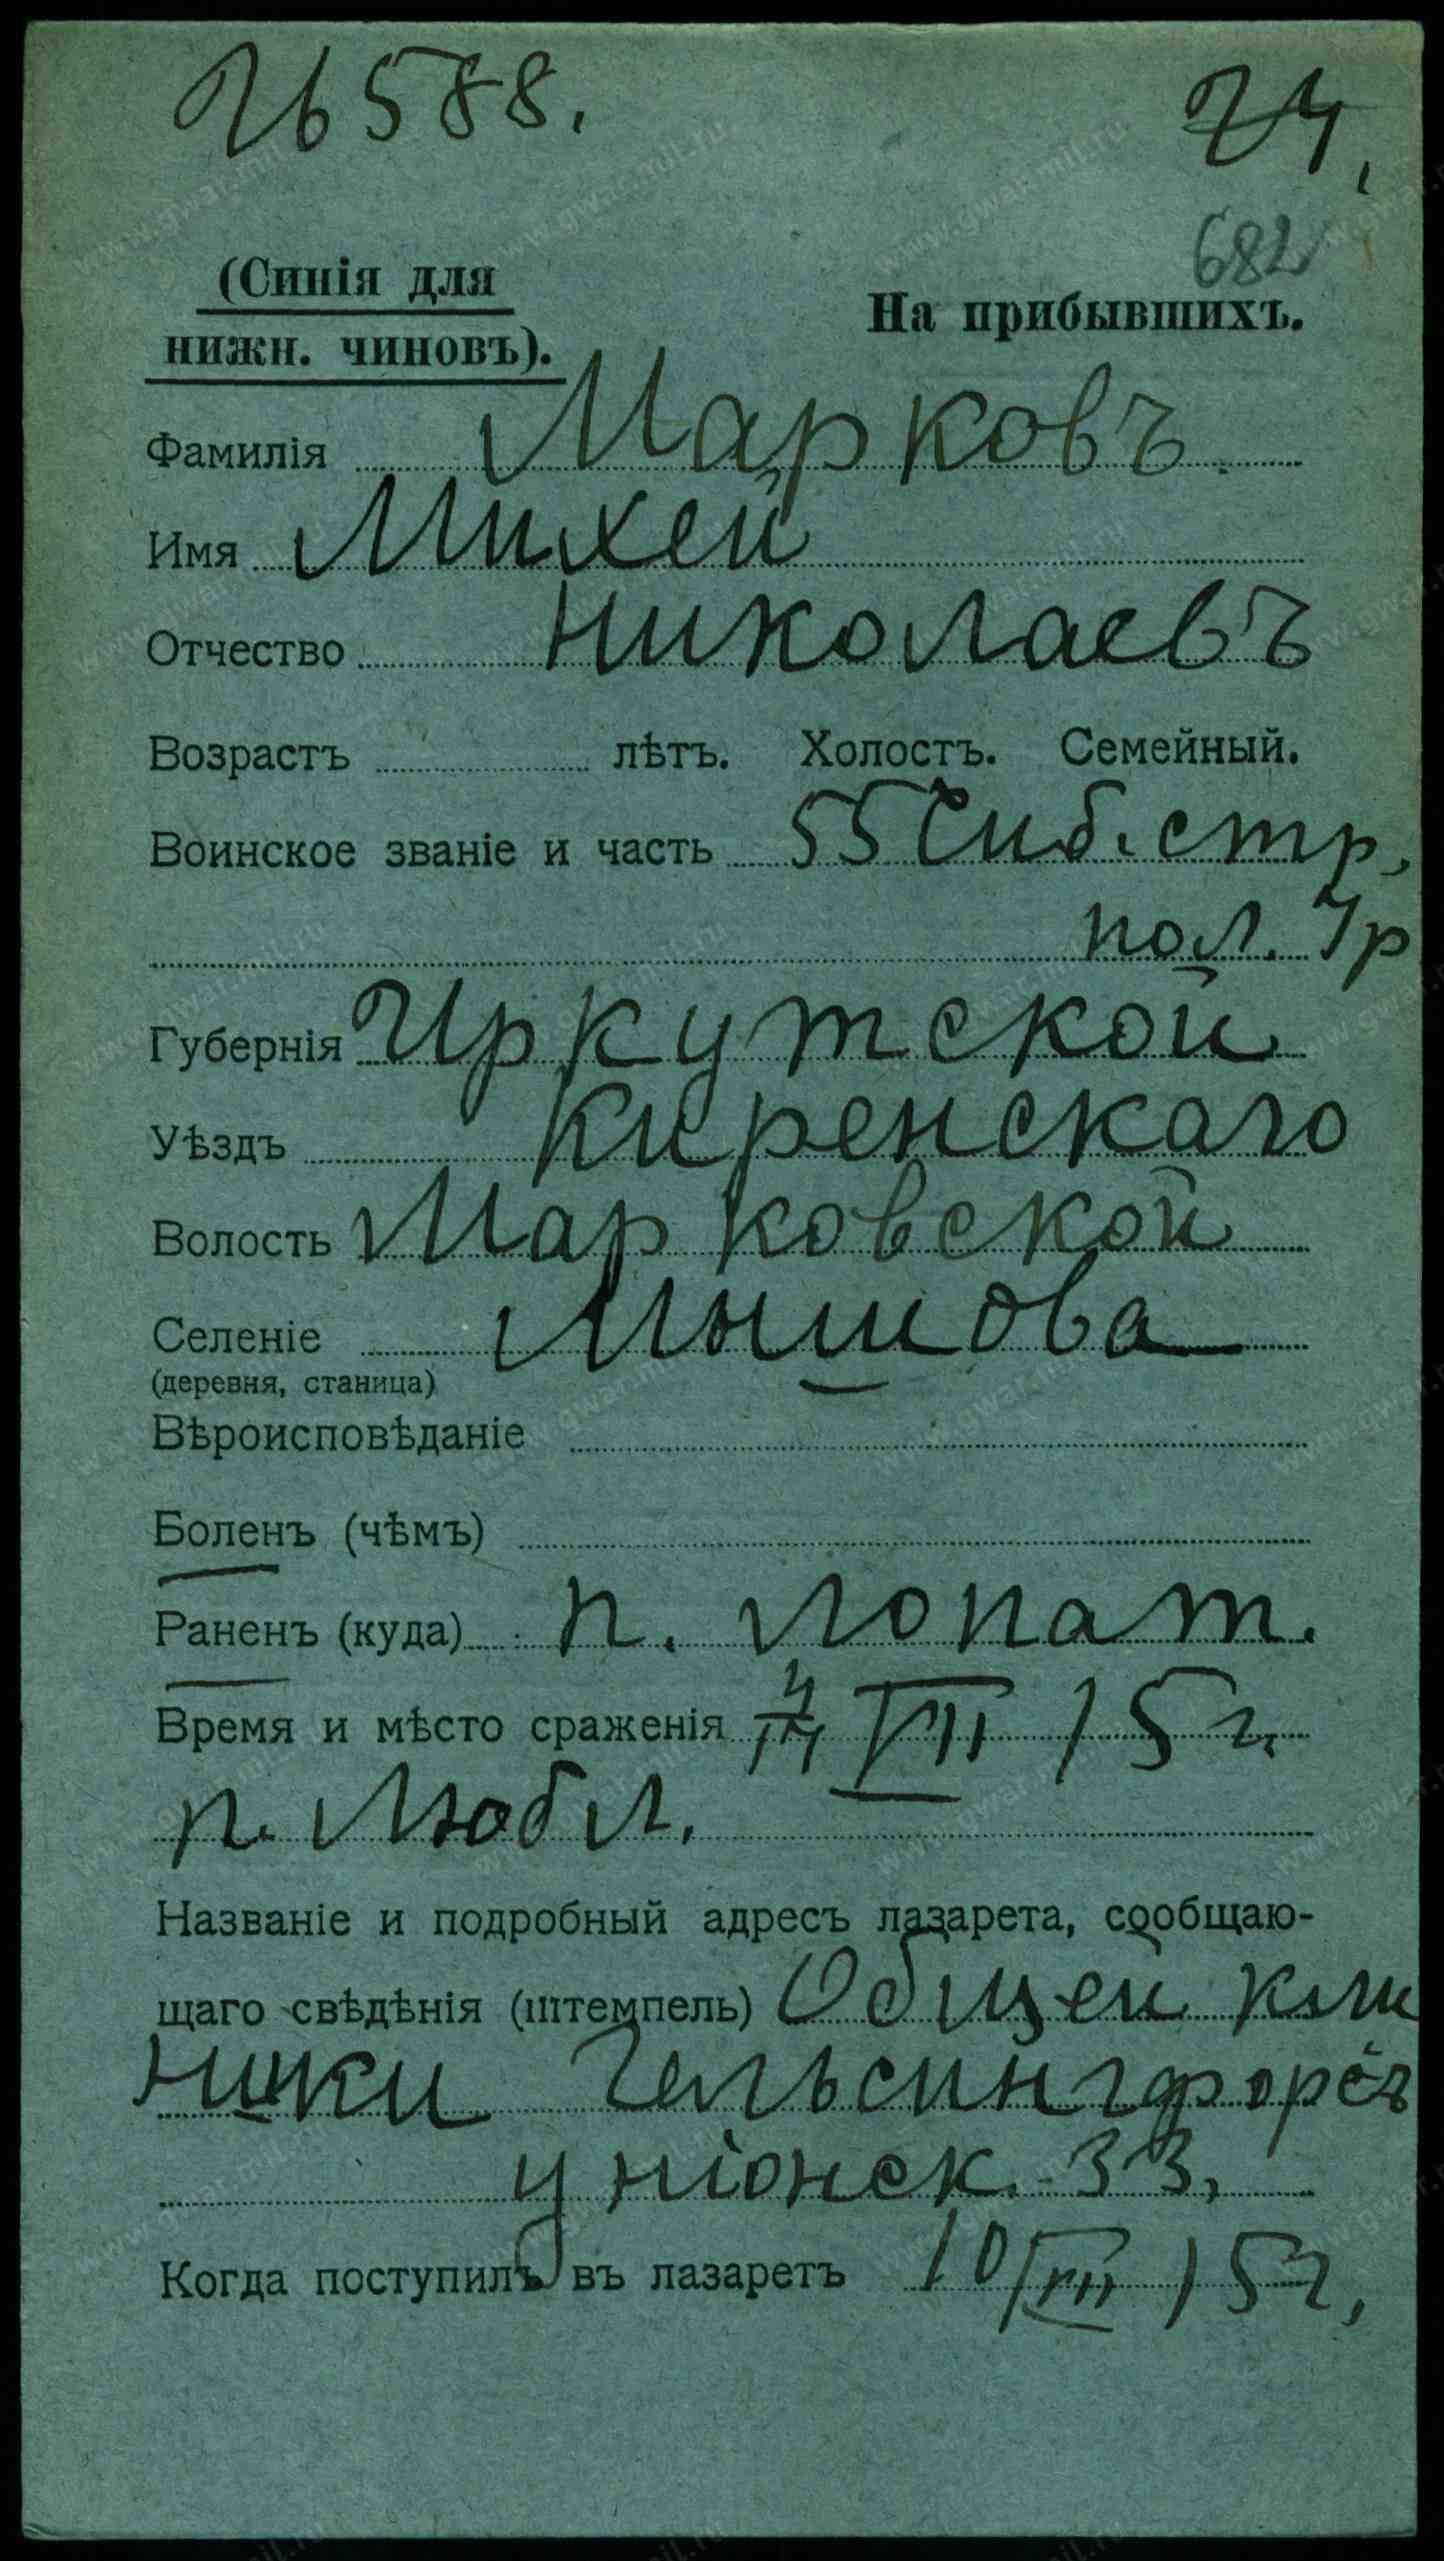 26588.
24,
682
(Синія для
нижн. чиновъ).
На прибывшихъ.
Фамилія Марковъ.
Имя Михей
Отчество Николаевъ
Возрастъ лѣтъ. Холостъ. Семейный.
Воинское званіе и часть 55 Сиб. стр.
пол. 7р
Губернія Иркутской
Уѣздъ Киренскаго
Волость Марковской
Селеніе Мышова
(деревня, станица)
Вѣроисповѣданіе
Боленъ (чѣмъ)
Раненъ (куда) п. лопат.
Время и мѣсто сраженія 4/14 VII 15 г.
п. Любл.
Названіе и подробный адресъ лазарета, сообщаю-
щаго свѣдѣнія (штемпель) Общей кли
ники Гельсингфорсъ
уніонск. 33,
Когда поступилъ въ лазаретъ 10/VII 15 г,